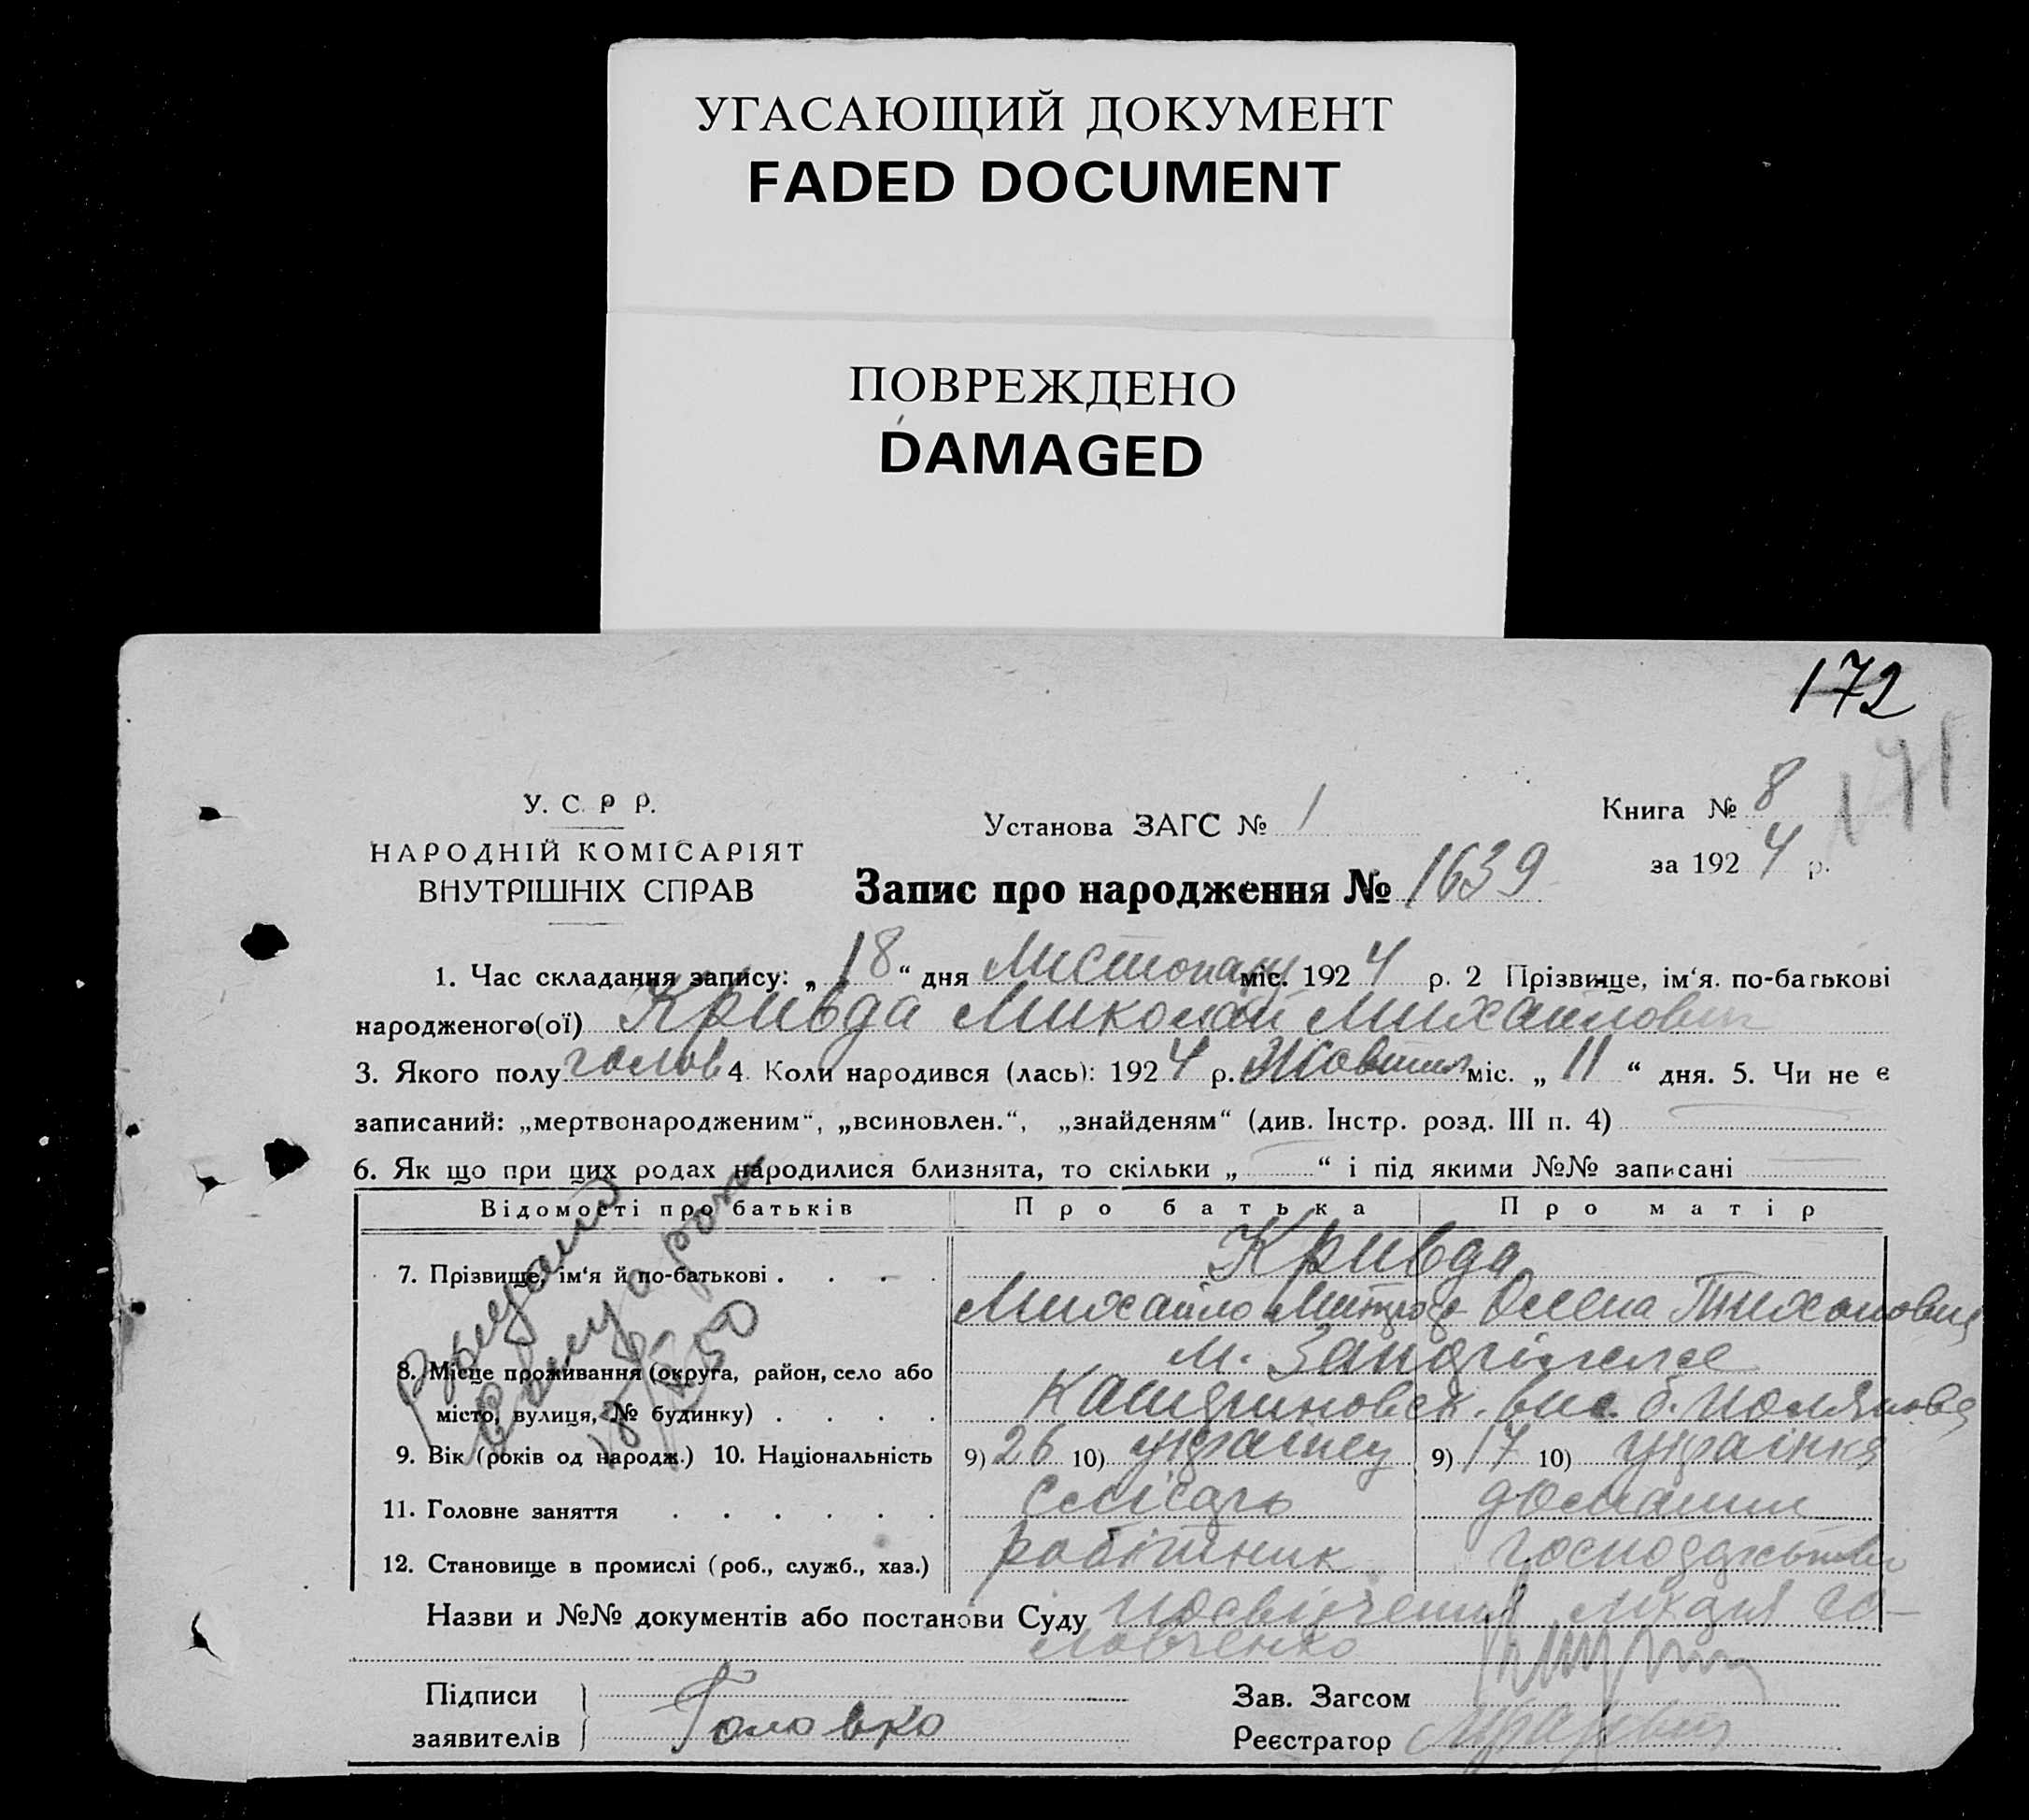 УГАСАЮЩИЙ ДОКУМЕНТ
FADED DOCUMENT
ПОВРЕЖДЕНО
DAMAGED
172
171
У. С. Р Р.
НАРОДНІЙ КОМІСАРІЯТ
ВНУТРІШНІХ СПРАВ
Установа ЗАГС № 1
Книга № 8
за 1924 р.
Запис про народження № 1639
1. Час складання запису: „18“ дня Листопаду міс. 1924 р. 2 Прізвище, ім‘я. по-батькові
народженого(ої) Кривда Миколай Михайлович
3. Якого полу голов 4. Коли народився (лась): 1924 р. Жовтня міс. „11“ дня. 5. Чи не є
записаний: „мертвонародженим“, „всиновлен.“, „знайденям“ (див. Інстр. розд. III п. 4)
6. Як що при цих родах народилися близнята, то скільки „ “ і під якими №№ записані
Відомості про батьків Про батька Про матір
Кривда
7. Прізвище, ім‘я й по-батькові . . . .
Михайло Олена Тихоновна
м. Запоріжжє
8. Місце проживання (округа, район, село або
місто, вулиця, № будинку) . . . .
9. Вік (років од народж.) 10. Національність 9) 26 10) українец 9) 17 10) українка
11. Головне заняття . . . . . . слюсарь домашнє
12. Становище в промислі (роб., служб., хаз.) робітник господарство
Назви и №№ документів або постанови Суду посвідчення лікаря Со-
ловченко
Підписи
заявителів
Головко
Зав. Загсом
Реєстратор